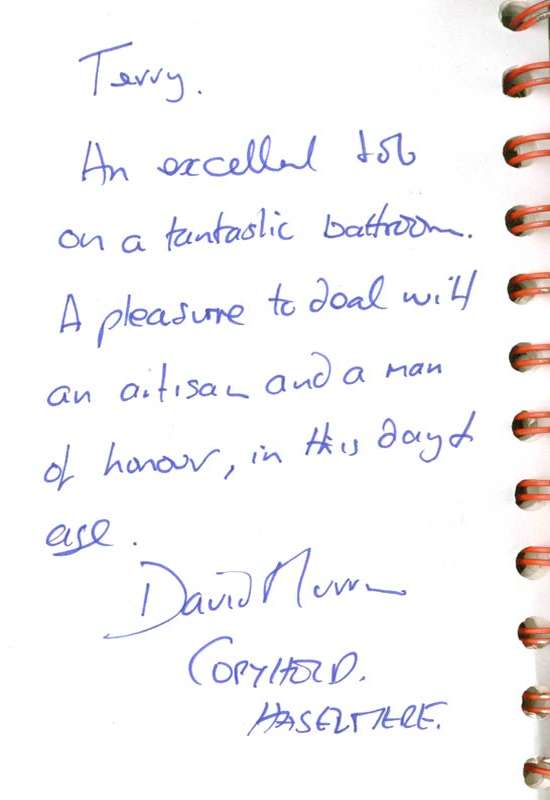 Terry.
An excellent job
on a fantastic bathroom.
A pleasure to deal with
an artisan and a man
of honour, in this day &
age.
David
COPYHOLD.
HASELMERE.